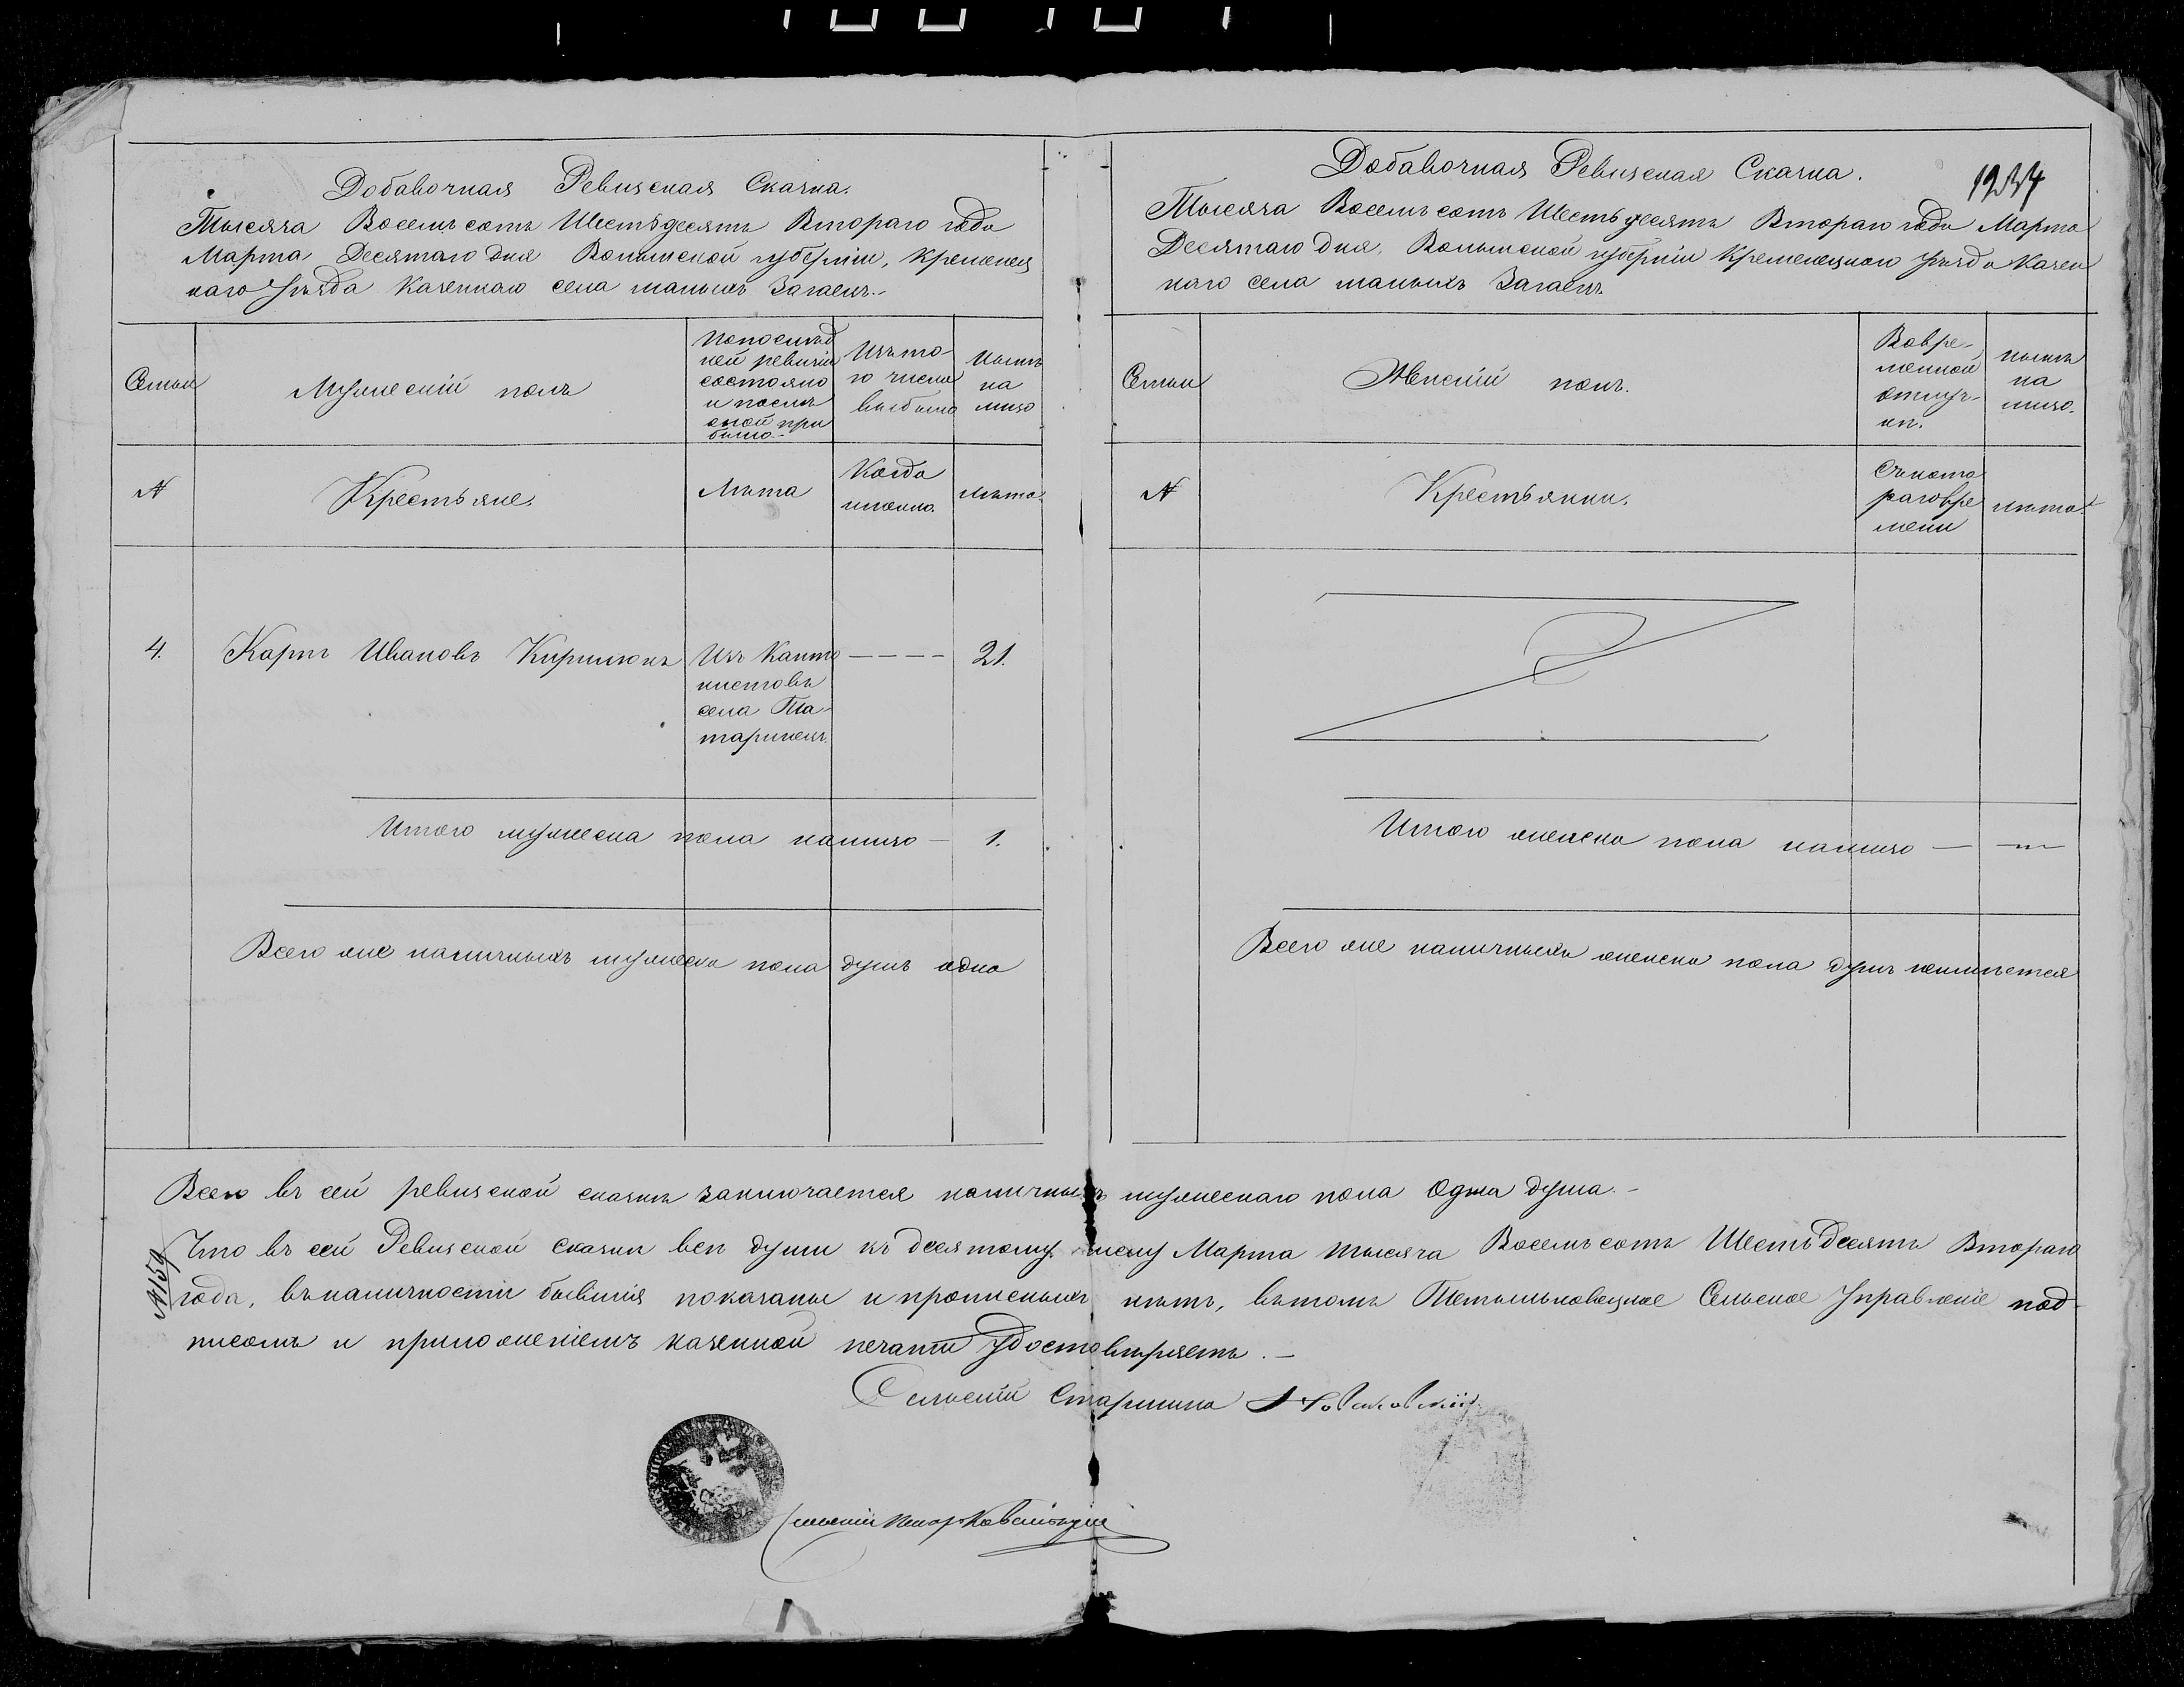 Добавочная Ревизская Сказка.
Тысяча Восемъ сотъ Шестьдесятъ Втораго года
Марта Десятаго дня Волынской губерніи, Кременец
каго Уѣзда Казеннаго села малыхъ Загаецъ.-
Семьи
Мужескій полъ
По послѣд
ней ревизіи
состояло
и послѣ
оной при
было.-
Изъ то-
го числа
выбыло
Нынѣ
на
лицо
N
Крестьяне.
Лѣта
Когда
именно.
лѣта.
4.
Карпъ Ивановъ Кирилюкъ
Изъ Канто
нистовъ
села Та-
таринецъ.
----
21.
Итого мужеска пола налицо — 1.
Всего же наличныхъ мужеска пола душъ одна
Добавочная Ревизская Сказка.
1234
Тысяча Восемъ сотъ Шестьдесятъ Втораго года Марта
Десятаго дня, Волынской губерніи Кременецкаго Уѣзда Казен
наго села малыхъ Загаецъ.
Семьи
Женскій полъ.
Вовре-
менной
отлуч-
кѣ.
нынѣ
на
лицо.
N
Крестьянки.
Съкото
раговре
мени
лѣта.
Итого женска пола налицо —
Всего же наличныхъ женска пола душъ неимѣется
Всего въ сей ревизской сказкѣ заключается наличныхъ мужескаго пола Одна душа.-
Что въ сей Ревизской сказкѣ всѣ души къ десятому числу Марта тысяча Восемъ сотъ Шестьдесятъ Втораго
N 159
года, въналичности бывшія показаны и прописныхъ нѣтъ, вътомъ Тетыльковецкое Сельское Управленіе под-
писомъ и приложеніемъ казенной печати удостовѣряетъ.-
Сельскій Старшина
Сельскій Писарь